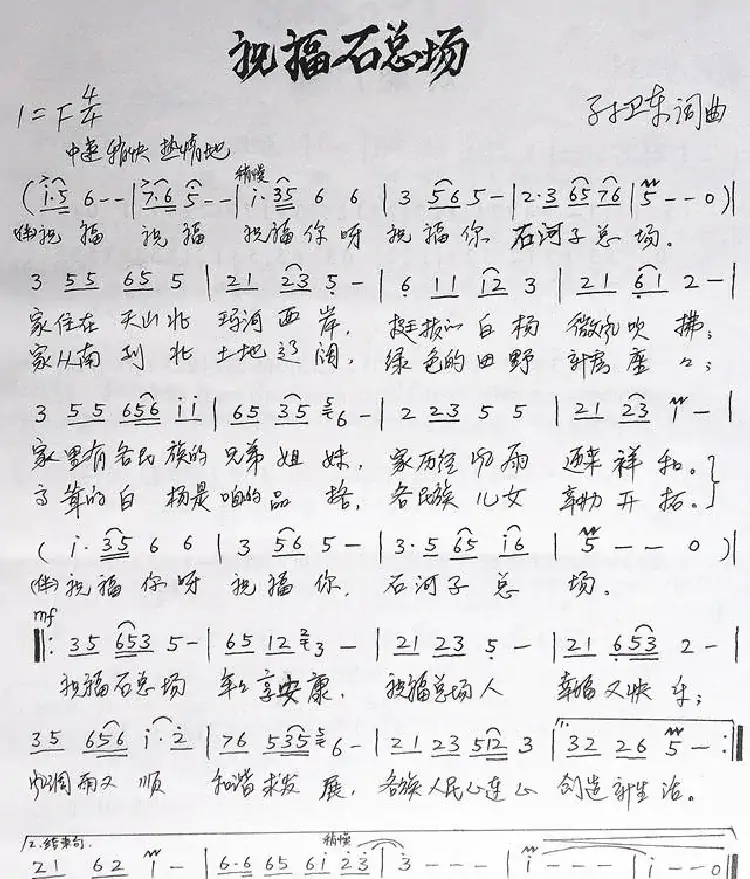 祝福石总场
1=F 4/4
孙卫东词曲
中速稍快 热情地
稍慢
(i·5 6 - - | 7·6 5 - - | i·35 6 6 | 3 56 5 - | 2·3 65 76 | 5 - - 0 )|
(伴)祝福 祝福 祝福你呀 祝福你 石河子总场。
3 55 65 5 | 21 23 5 - | 6 11 12 3 | 21 61 2 - |
家住在天山北 玛河西岸, 挺拔的白杨 微风吹拂;
家从南到北 土地辽阔, 绿色的田野
3 55 656 ii | 65 35 6 - | 2 23 5 5 | 21 23 i - |
家里有各民族的兄弟姐妹, 家历经风雨 迎来祥和。
高耸的白杨是咱的品格, 各民族儿女 辛勤开拓。
( i·35 6 6 | 3 56 5 - | 3·5 65 i6 | 5 - - 0 )|
(伴)祝福你呀 祝福你, 石河子总场。
mf
‖: 35 653 5 - | 65 12 3 - | 21 23 5 - | 21 653 2 - |
祝福石总场 年年享安康, 祝福总场人 幸福又快乐;
35 656 i·2 | 76 535 6 - | 21 23 512 3 | 1. 32 26 5 - :‖
风调雨又顺 和谐求发展, 各族人民心连心 创造新生活。
2.结束句. 稍慢
21 62 i - | 6·6 65 6i 23 | 3 - - - | i - - - | i - - 0 ‖